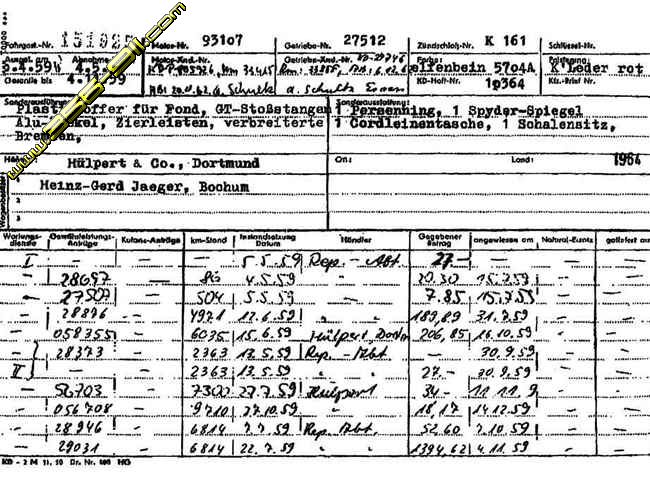 www.356-sell.com
Fahrgest.-Nr. 15102 Motor-Nr. 93107 Getriebe-Nr. 27512 Zündschloß-Nr. K 161 Schlüssel-Nr.
Ausgel. am Abnahme Motor-Änd.-Nr. Getriebe-Änd.-Nr. Farbe: Polsterung:
6.4.59 elfenbein 5704A K'leder rot
Garantie bis 4. 59 KD-Heft-Nr. 10364 Kfz.-Brief Nr.
Sonderausführung: Sonderausstattung:
Plast. Koffer für Fond, GT-Stoßstangen 1 Persenning, 1 Spyder-Spiegel
Alu- kel, Zierleisten, verbreiterte 1 Cordleinentasche, 1 Schalensitz,
Bremsen,
Hülpert & Co., Dortmund Ort: Land: 1964
1 Heinz-Gerd Jaeger, Bochum
2
3
Wartungs-dienste Gewährleistungs-Anträge Kulanz-Anträge km-Stand Instandsetzung Datum Händler Gegebener Betrag angewiesen am Natural-Ersatz geliefert am
I — — — 5.5.59 Rep. - Abt. 27.- — — —
— 28697 — 86 4.5.59 " " 20.30 15.7.59 — —
— 27507 — 504 5.5.59 " " 7.85 15.7.59 — —
— 28876 — 4971 12.6.59 " " 189,89 31.7.59 — —
— 058355 — 6035 15.6.59 Hülpert, Dortm 206,85 16.10.59 — —
— 28373 — 2363 13.5.59 Rep. - Abt. — 30.9.59 — —
II — — 2363 13.5.59 " " 27.- 30.9.59 — —
— 56703 — 7300 27.7.59 Hülpert 34.- 11.11.9 — —
— 056708 — 9710 27.10.59 " 18,17 14.12.59 — —
— 28946 — 6814 7.7.59 Rep. Abt. 52.60 7.10.59 — —
— 29031 — 6814 22.7.59 " " 1394,62 4.11.59 — —
KD - 2 M 11. 58 Dr. Nr. HG